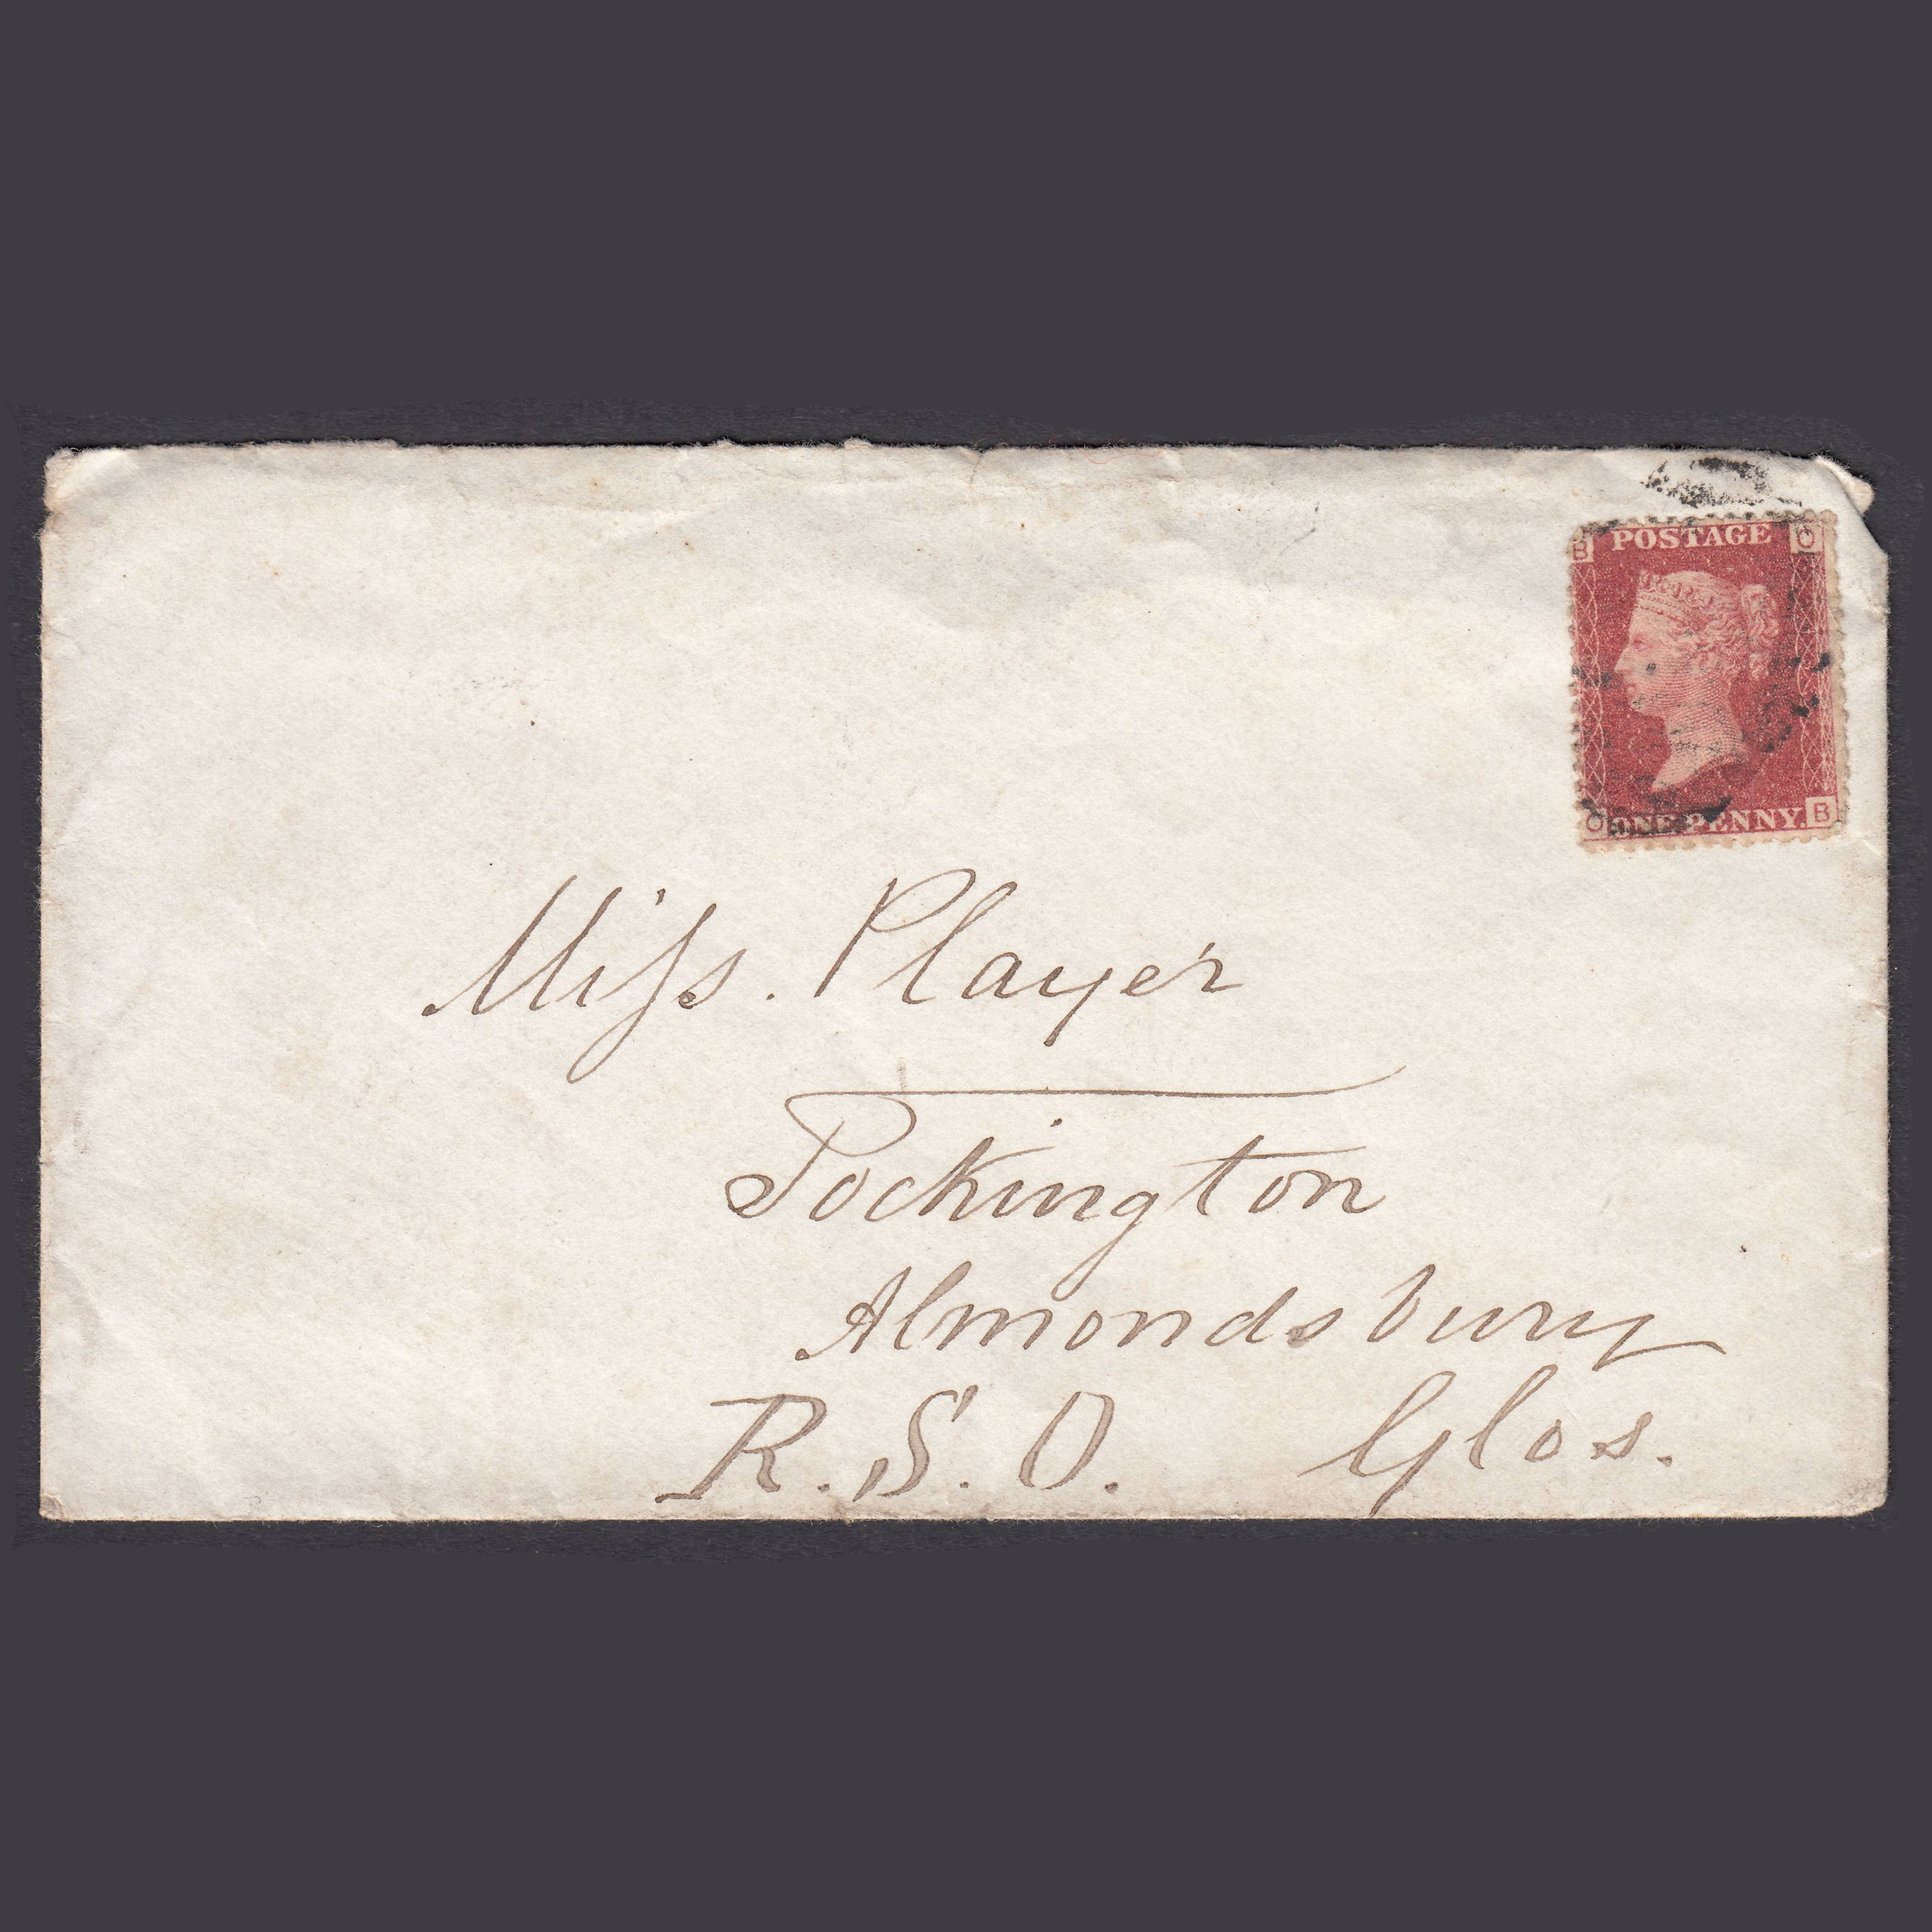 B POSTAGE O
O ONE PENNY. B
Miss. Player
Tockington
Almondsbury
R.S.O. Glos.